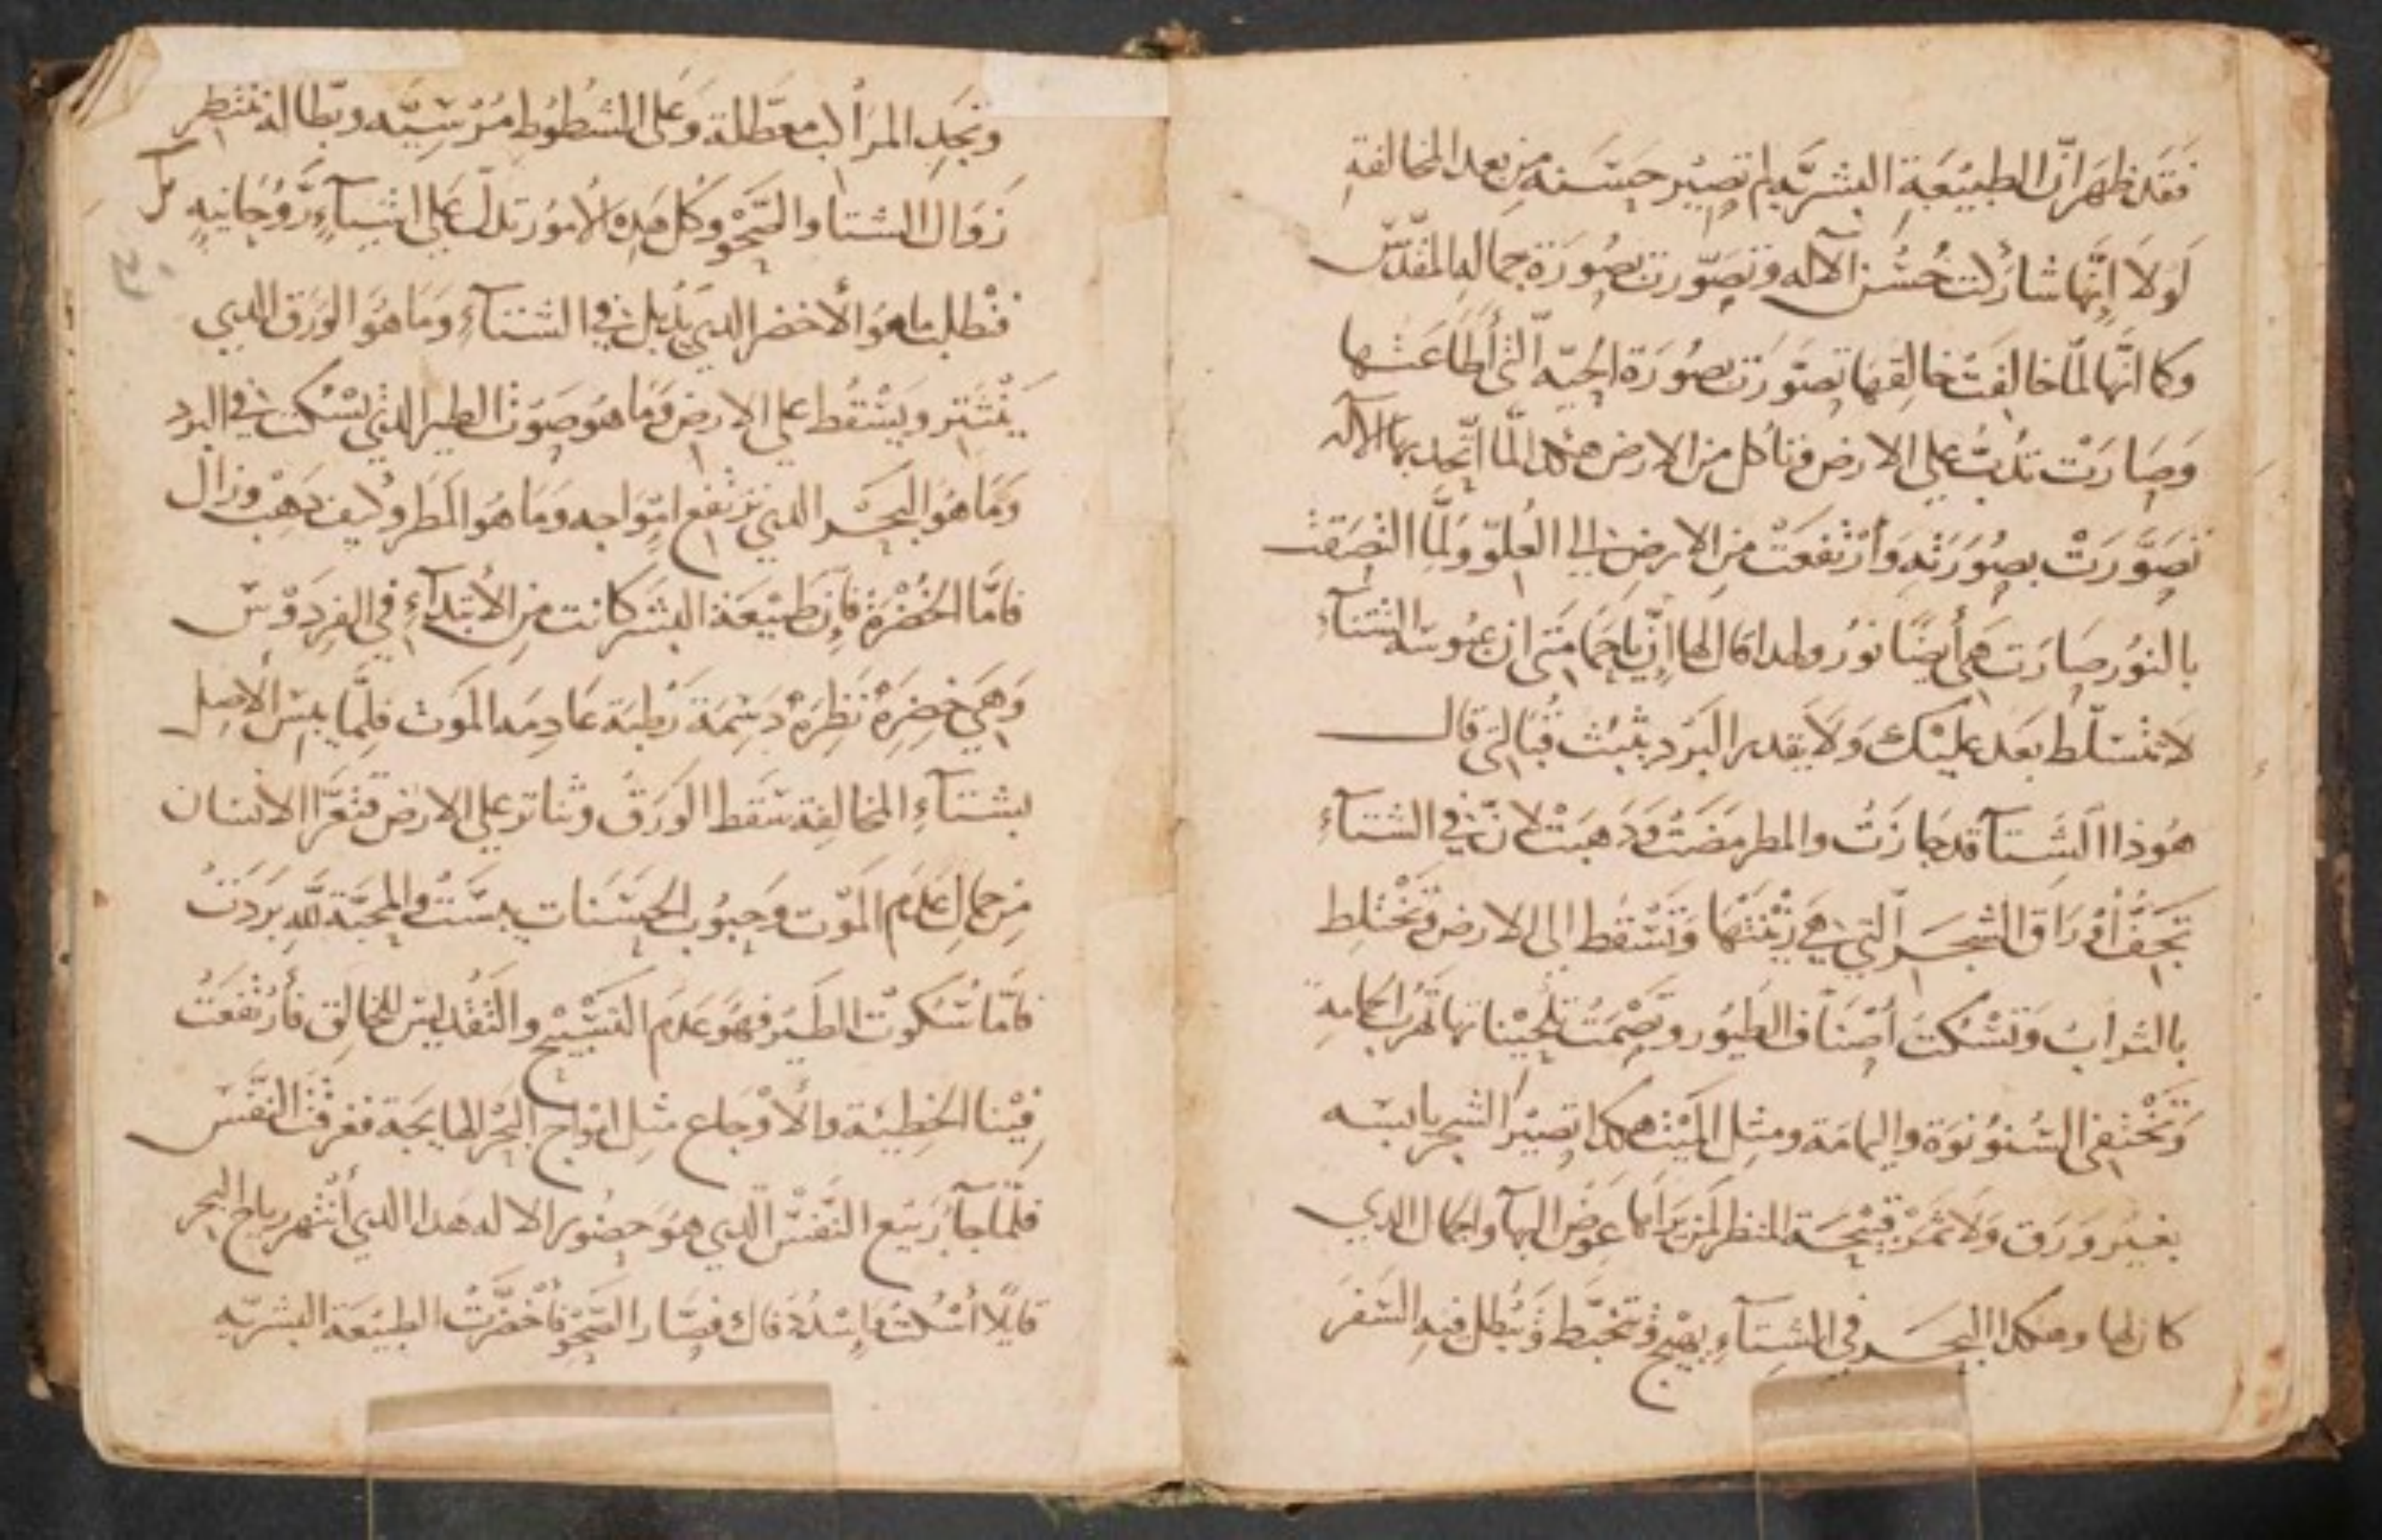 فَقَد ظهَر انّ الطبيْعَةِ البشريَّه لم تصِيْر حسَنه مِن بعد المخالفةِ
لَولاَ اِنَّها شاركت حُسْن الآله وتصَوّرت بصُورَة جماله المقدّس
وكما انَّها لمّا خالفَت خالِقهَا تصَوّرَت بصُورَة الحيّه الّتى أطَاعَتها
وَصَارَتْ تدُبّ على الارض وتاكل من الارض هكذا لمَّا اتّحد بها الآله
تصَوَّرَتْ بصُورَتهِ وَأرْتفعَتْ مِن الارضِ الى العُلوّ ولَمَّا التصَقت
بالنوُر صَارَت هى أيضًا نوُر ولهدا قال لها اِنّ ياحمَامَتى ان عبُوسَة الشتآءِ
لا تتسَلّط بَعد عليْك وَلاَ يقدر البَرْد يثبُت قبَالتى قال
هوُذا الشِتآ قد جازَتْ والمطر مضَتْ وَدَهبَتْ لانّ فى الشتآءِ
تَجفّ أوْرَاق الشجَر الّتي هِيَ زيْنَتْها وَتسْقط الى الارض وتَخْتلِط
بالترابْ وَتسْكت أصْنَاف الطيُور وتصْمت تلحِيْناتها تَهرُب الحمامةِ
وَتَخْتفى السُنوُنوَة واليمامَة ومِثل الميْت هكدا تصِيْر الشجر يابسَه
بغيْر ورَق وَلاَ ثمَرْ قبيْحَة المنظر لمَن يرَاها عوَض البهآ والجمال الدى
كان لها وهكدا البحَر فى الشِتآءِ يهِيْج وتتخبَّط وَيبْطل فيهِ السَفرَ
وتجَدِ المرَاكب معَطّلة وَعَلى الشطوُط مُرْسِيَّه وبطّاله تنتظر
زوَال الشتا والصَّحْو وكل هدِه الاموُر تدلّ على اشيآءٍ رُوُحَانيهٍ
فنْطلب ما هوَ الأخضر الدي يَذْبل فى الشتآءِ وَمَا هوَ الورَق الدي
يَنْتَثِر ويَسْقُط على الارض وَمَا هوَ صَوْت الطير الدي يسْكت فى البرد
وَمَا هُوَ البحَر الدي ترتفع امْوَاجه وَمَا هُوَ المطر وكيف دَهبْ وزال
فامَّا الخُضْرَة فاِن طبيْعَة البشَر كانت مِن الأبْتدآءِ فى الفِردَوْسْ
وَهىَ خضِرَهْ نَظِرَهْ دَسِمَة رَطْبة عَادِمَه المَوْت فلِمَّا يبسَ الأصل
بشتآءِ المخالِفة سَقط الورَقْ وتناثر على الارض فتعَرَّا الانسَان
مِن جمالِ عَدَم المَوْت وحبوُب الحسَنات يبسَتْ والمحبّة للهِ بَرَدَتْ
فامّا سُكوُت الطيْر فهوَ عَدم التسْبيْح والتقدِيسْ للخالِق فأرتَفعَتْ
فِيْنا الخطِيئة والأوْجاع مثِل امْواج البَحْر الهايَجة فغرقَتْ النَّفسْ
فلمّا جآ رَبيْع النَّفسْ الدي هوَ حضوُر الاله هَدا الدي أنتهر رياح البحر
قايلاً أسْكت وَاِسْدُدْ فاك فصَار الصَحْو فأخْضَرَّتْ الطبيْعَة البشريّه